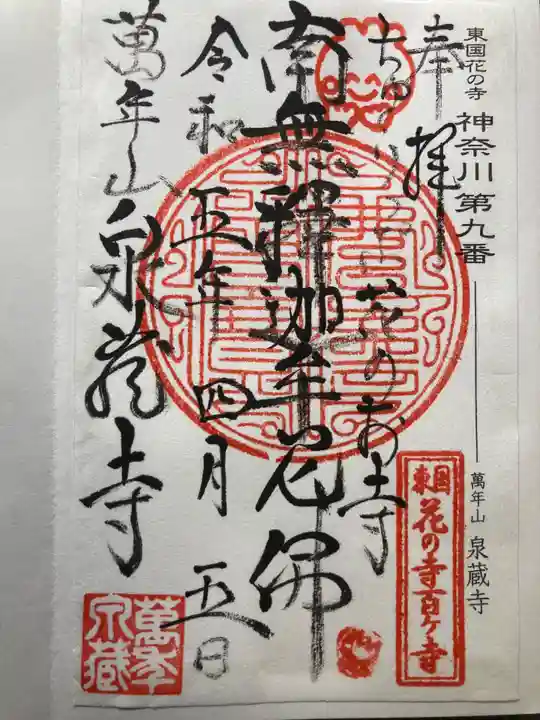 東国花の寺 神奈川 第九番
萬年山 泉蔵寺
奉拝
花のお寺
南無釋迦牟尼佛
令和五年四月五日
萬年山泉蔵寺
東国
花の寺百ケ寺
萬年
泉蔵